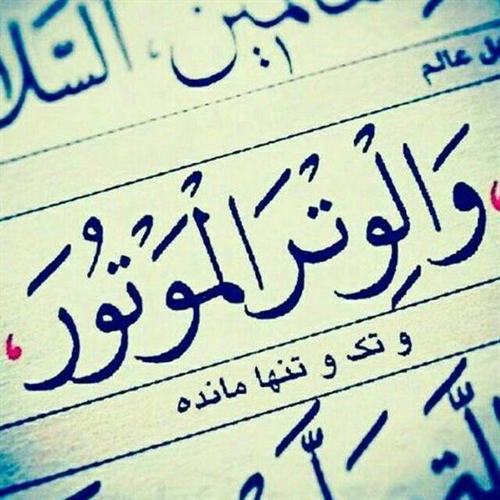 عالمين، السلا
ل عالم
وَالْوِتْرَ الْمَوْتُورَ،
و تک و تنها مانده